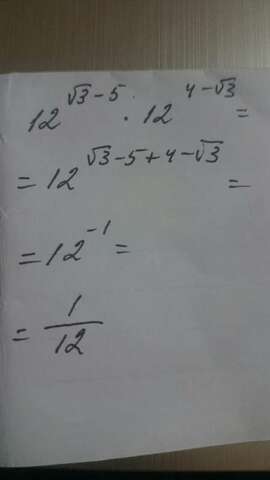 12^{√3-5} · 12^{4-√3} =
= 12^{√3-5+4-√3} =
= 12^{-1} =
= \frac{1}{12}